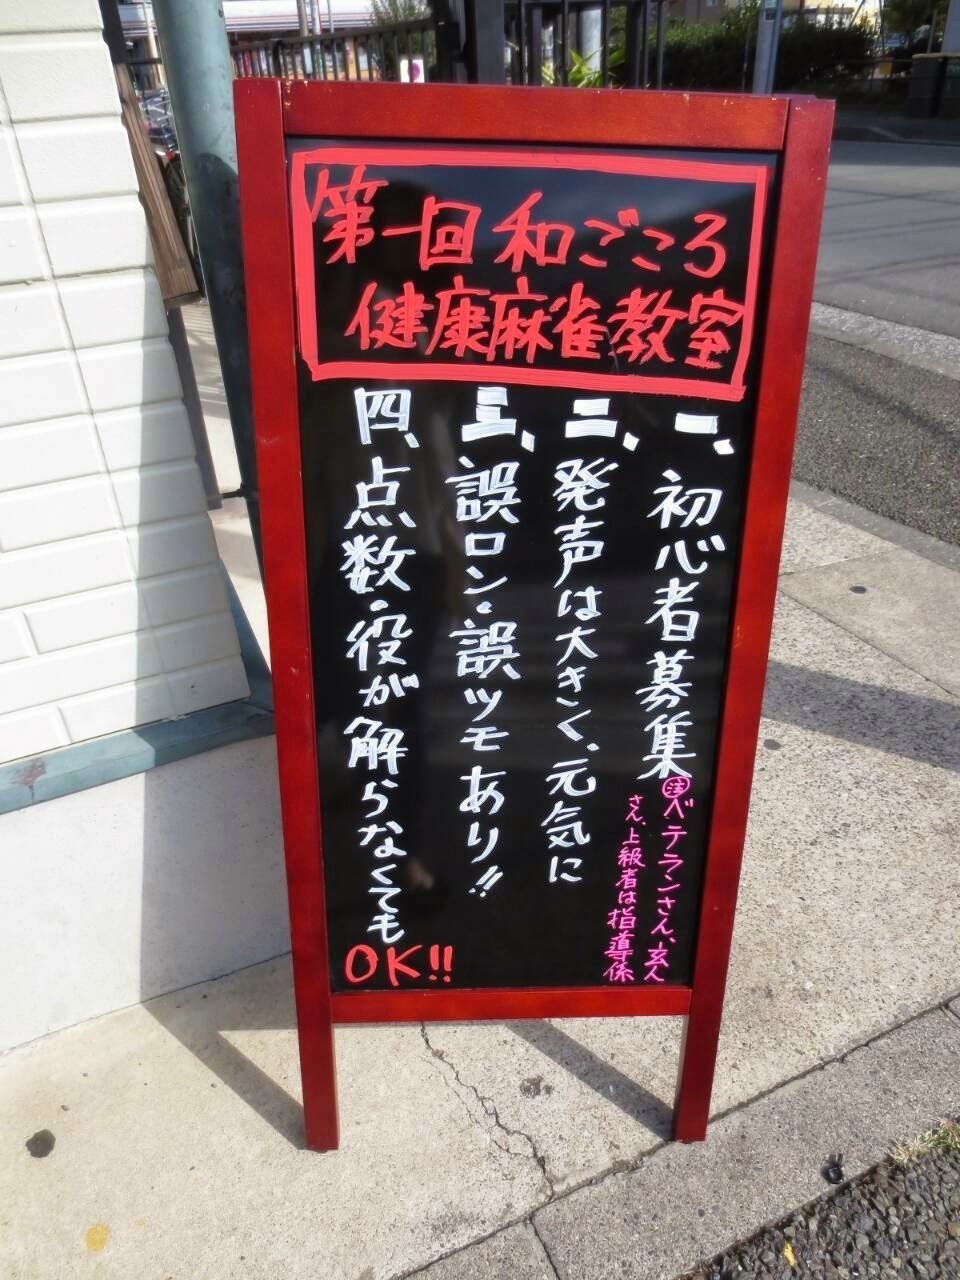 第一回 和ごころ
健康麻雀教室
一、初心者募集
注 ベテランさん、玄人
さん、上級者は指導係
二、発声は大きく、元気に
三、誤ロン・誤ツモあり!!
四、点数・役が解らなくても
OK!!